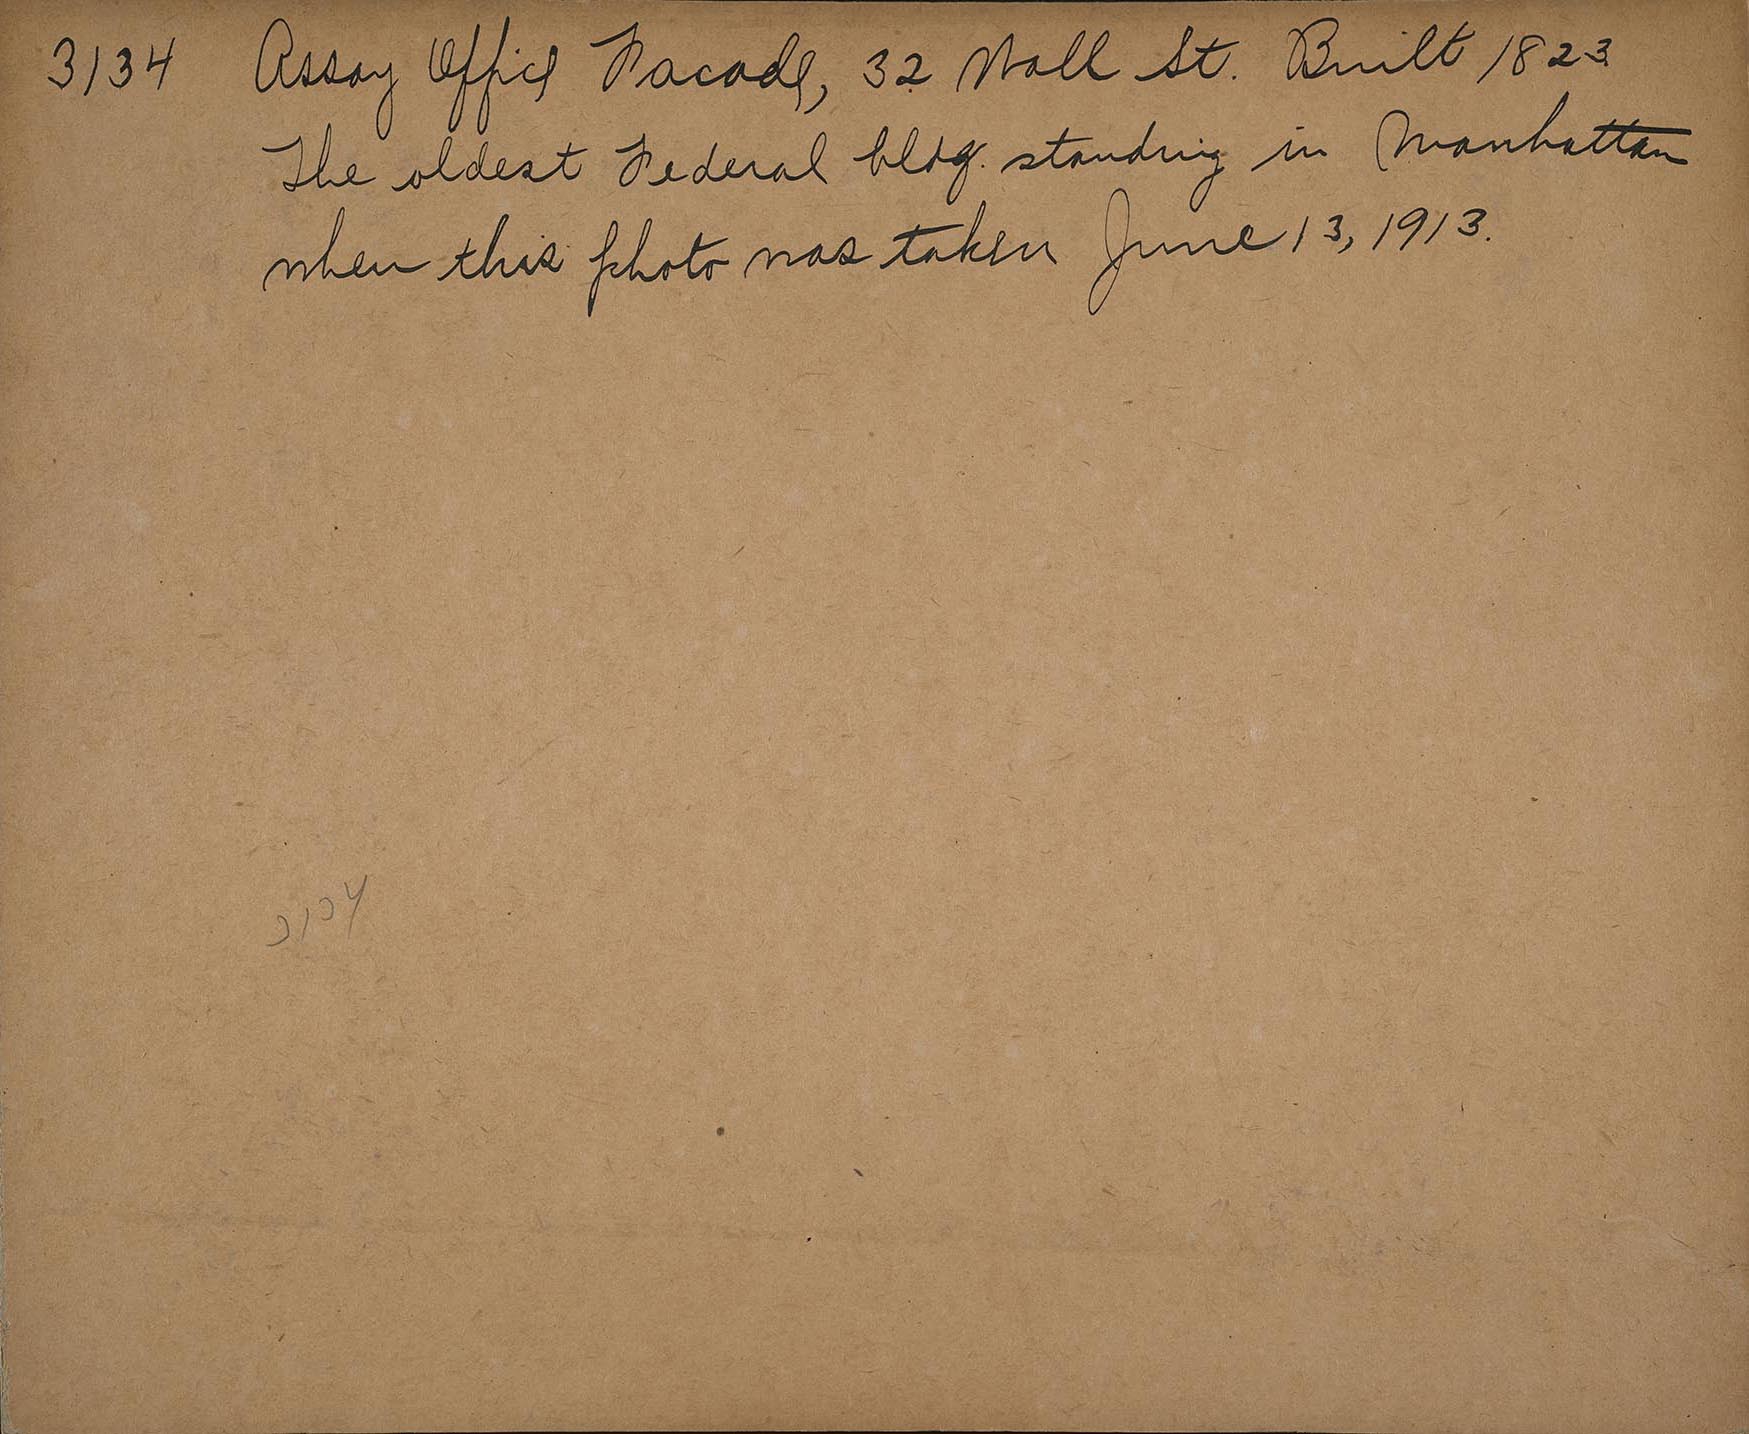 3134 Assay Office Facade, 32 Wall St. Built 1823
The oldest Federal bldg. standing in Manhattan
when this photo was taken June 13, 1913.
3134